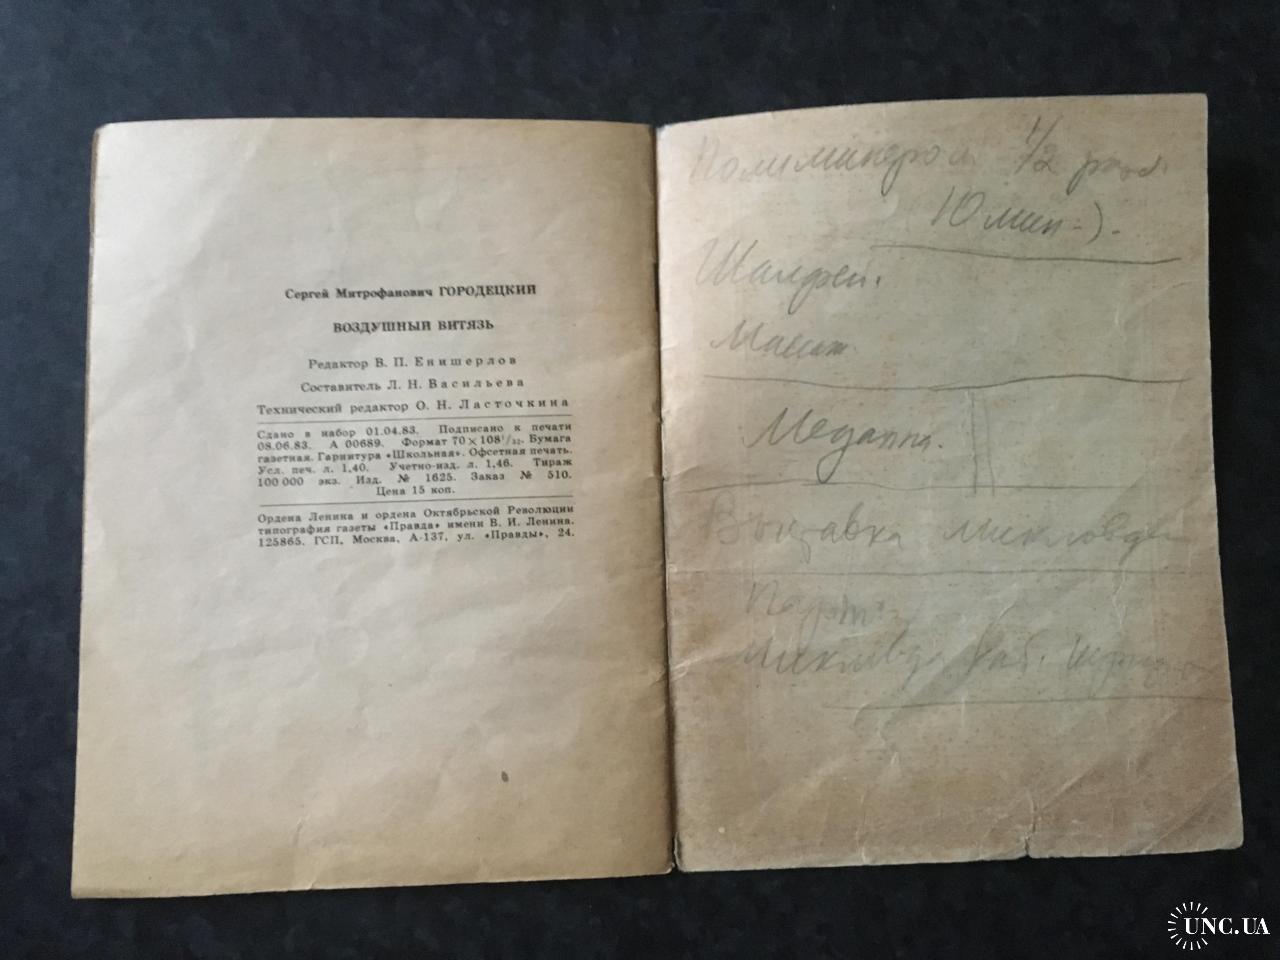 Сергей Митрофанович ГОРОДЕЦКИЙ
ВОЗДУШНЫЙ ВИТЯЗЬ
Редактор В. П. Енишерлов
Составитель Л. Н. Васильева
Технический редактор О. Н. Ласточкина
Сдано в набор 01.04.83. Подписано к печати
08.06.83. А 00689. Формат 70×108¹/₃₂. Бумага
газетная. Гарнитура «Школьная». Офсетная печать.
Усл. печ. л. 1,40. Учетно-изд. л. 1,46. Тираж
100 000 экз. Изд. № 1625. Заказ № 510.
Цена 15 коп.
Ордена Ленина и ордена Октябрьской Революции
типография газеты «Правда» имени В. И. Ленина.
125865. ГСП, Москва, А-137, ул. «Правды», 24.
1/2
(10 мин.).
Шалфей.
Выставка
UNC.UA